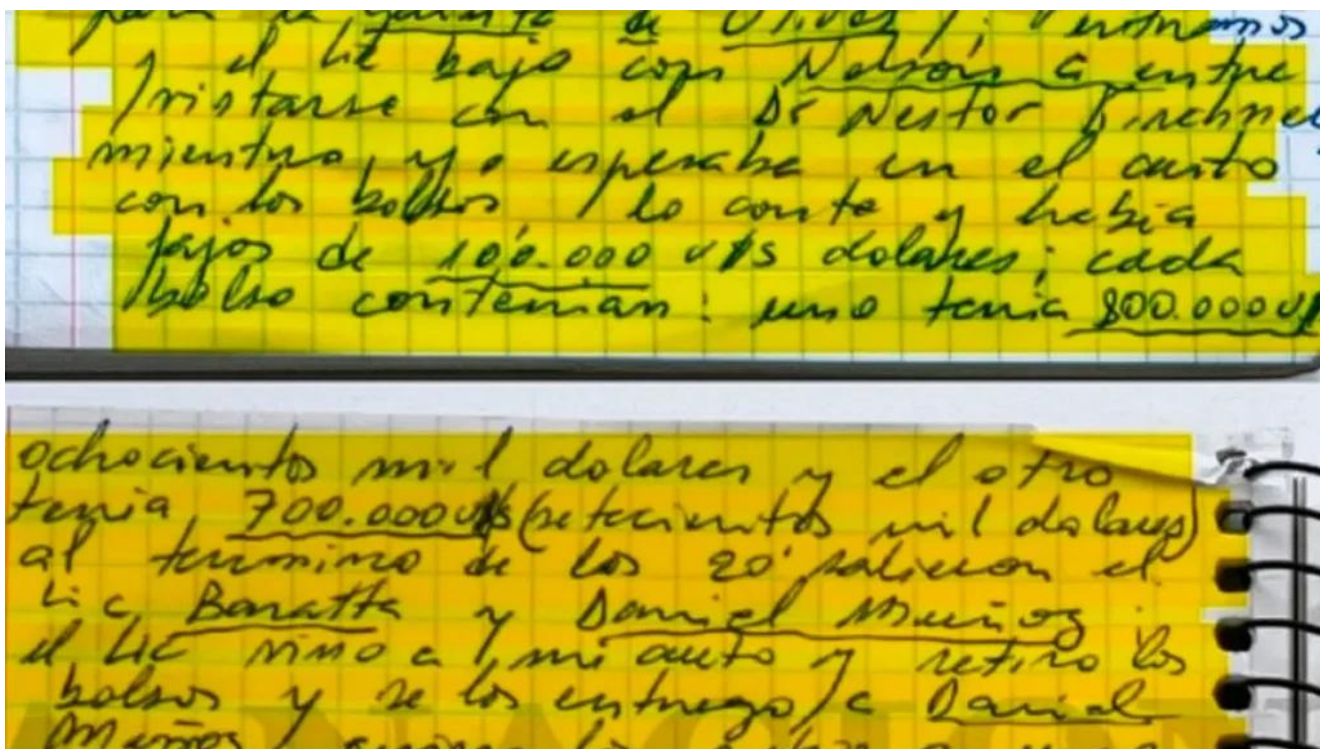 para la quinta de Olivos /; entramos
y el Lic bajo con Nelson a entre
/vistarse con el Dr Nestor Kirchner
mientras, yo esperaba en el auto
con los bolsos / lo conte y había
fajos de 100.000 u$s dolares; cada
bolso contenian: uno tenía 800.000 u$
ochocientos mil dolares y el otro
tenia, 700.000 u$s (setecientos mil dolares)
al termino de los 20' salieron el
Lic Baratta y Daniel Muñoz;
el Lic vino a mi auto y retiro los
bolsos y se los entrego / a Daniel
Muñoz